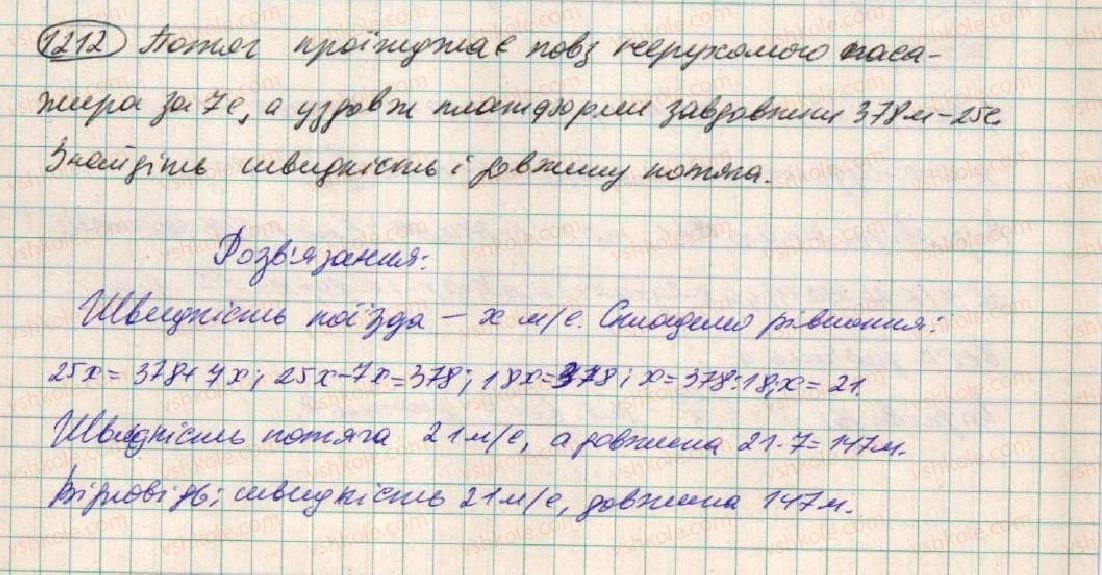 1212 Потяг проїжджає повз нерухомого паса-
жира за 7с, а уздовж платформи завдовжки 378м-25с.
Знайдіть швидкість і довжину потяга.
Розв'язання:
Швидкість поїзда - x м/с. Складемо рівняння:
25x = 378+7x; 25x-7x=378; 18x=378; x=378:18; x=21.
Швидкість потяга 21м/с, а довжина 21·7=147м.
Відповідь: швидкість 21м/с, довжина 147м.